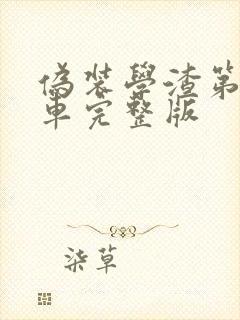 偽裝學渣第
車完整版
柒草